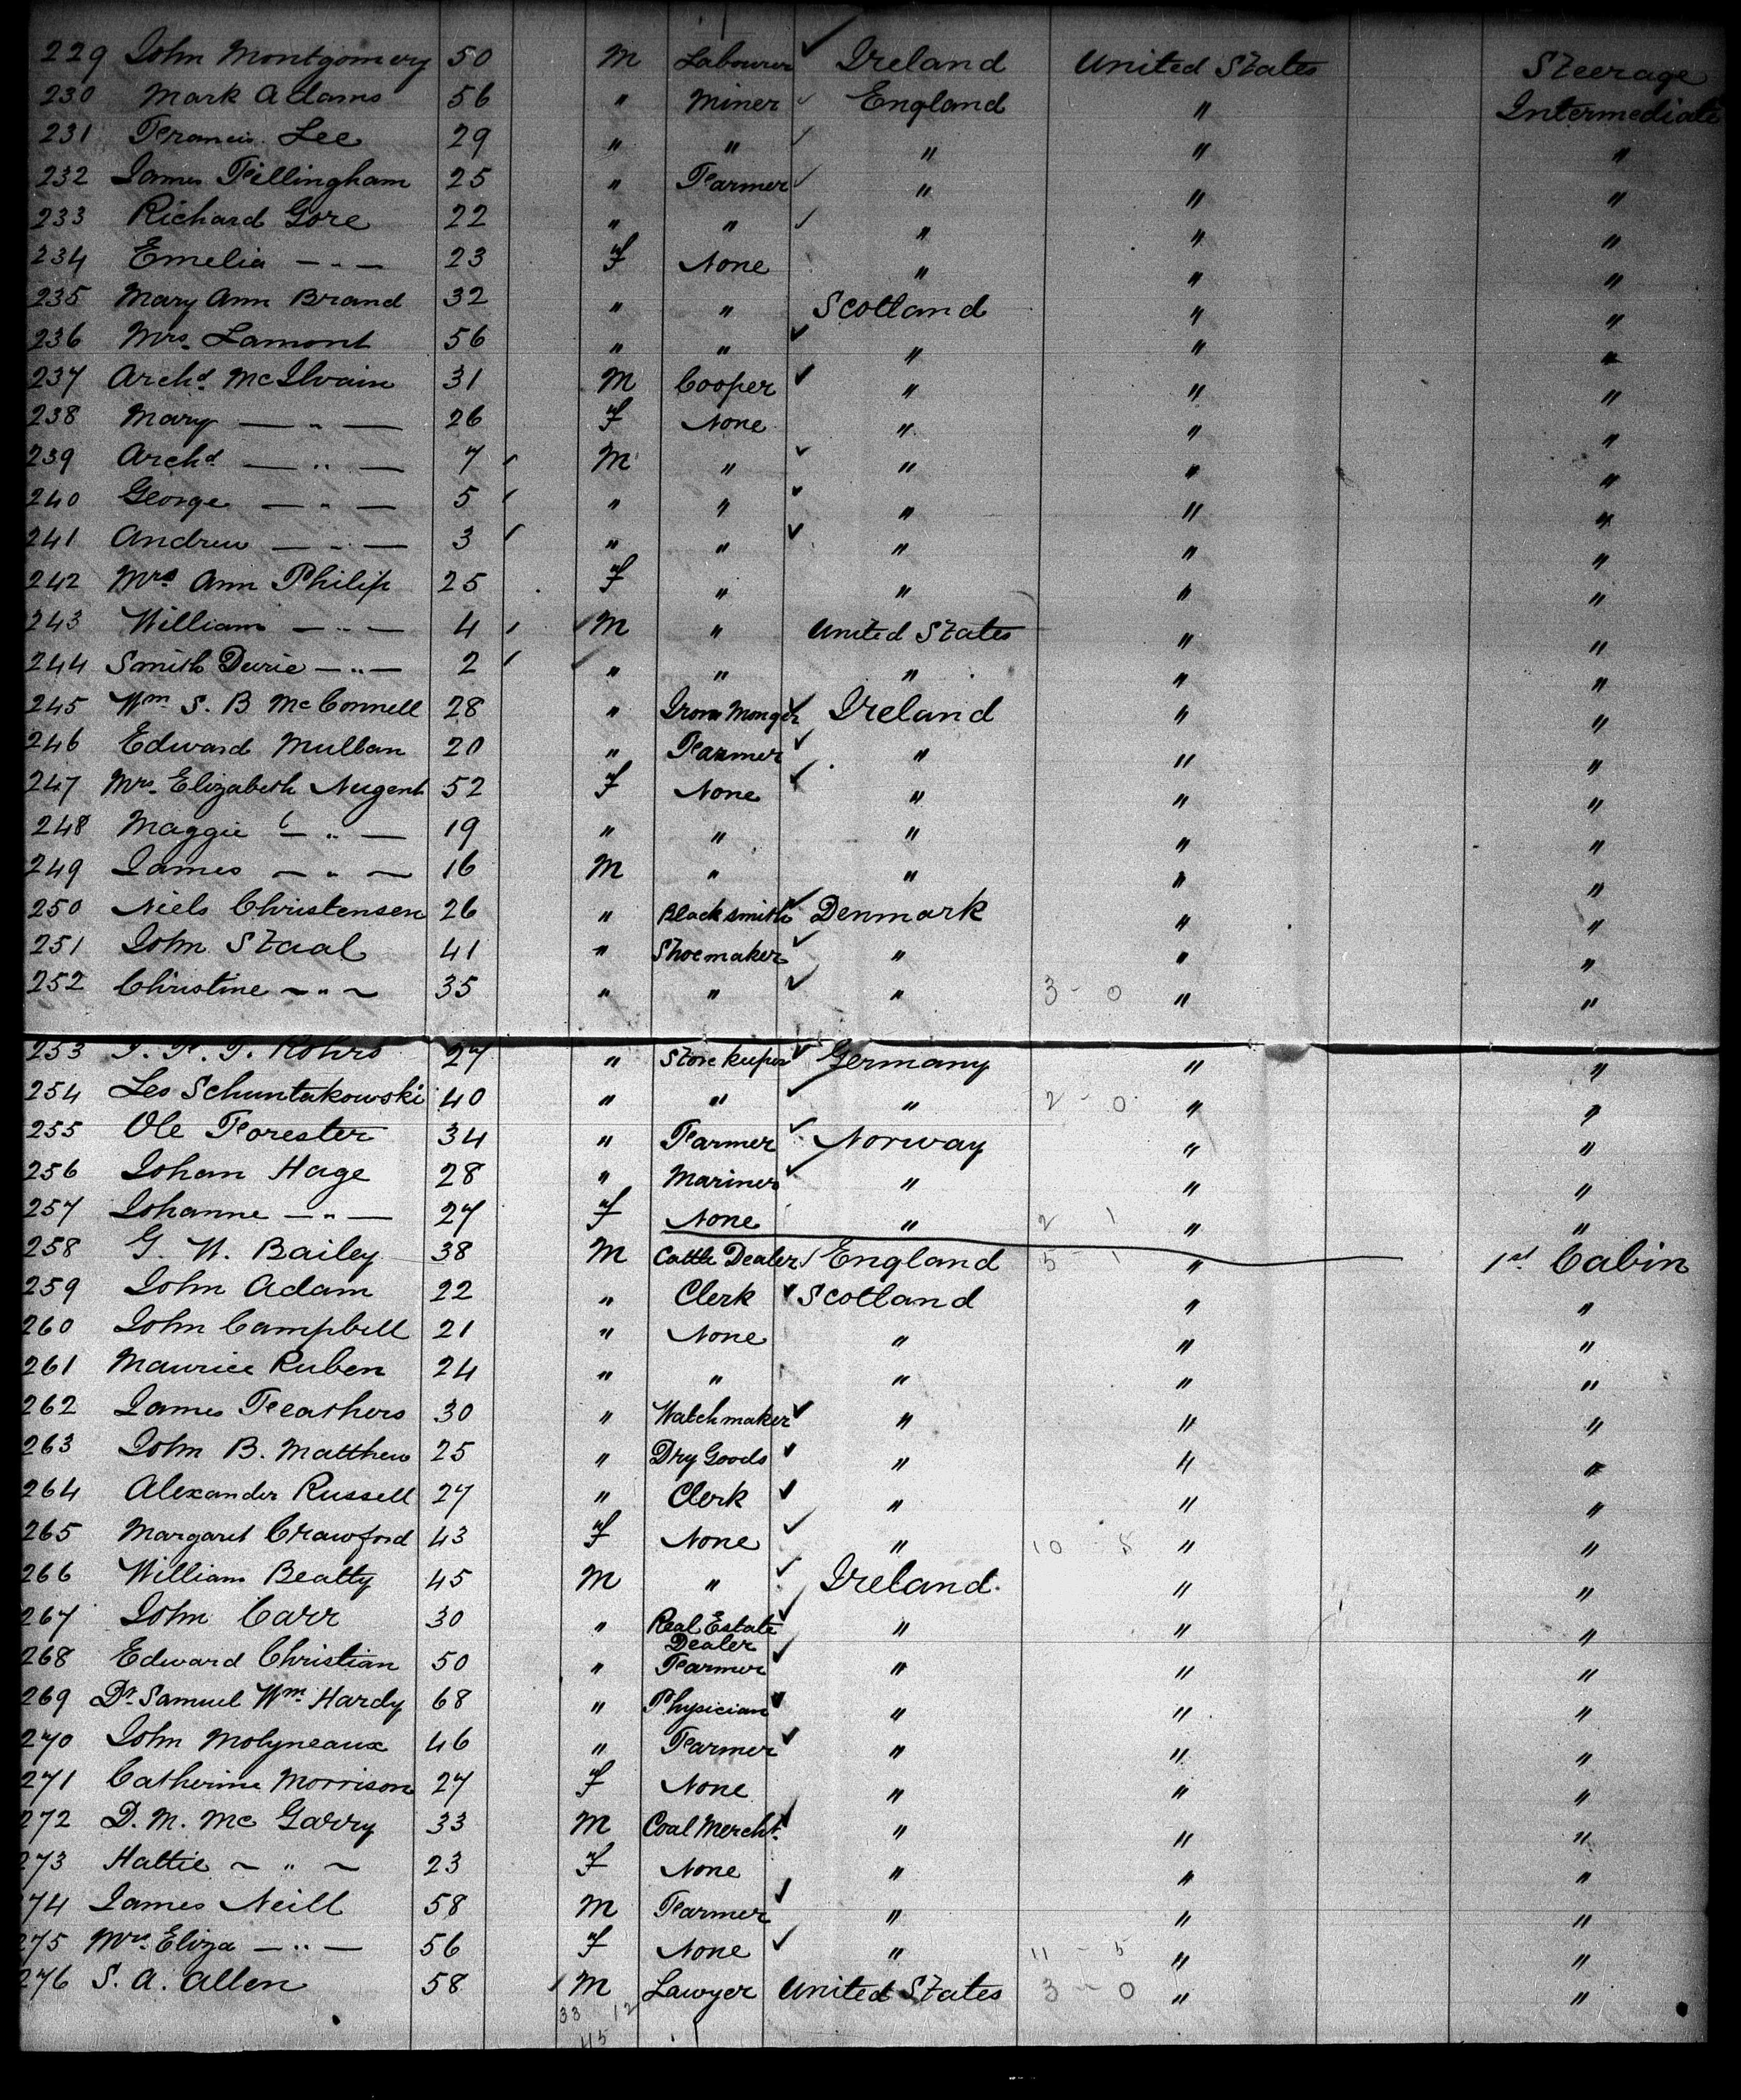 229 John Montgomery 50 M Labourer ✓ Ireland United States Steerage
230 Mark Adams 56 " Miner ✓ England " Intermediate
231 Francis Lee 29 " " ✓ " " "
232 James Fillingham 25 " Farmer ✓ " " "
233 Richard Gore 22 " " ✓ " " "
234 Emelia — " — 23 F None " " "
235 Mary Ann Brand 32 " " Scotland " "
236 Mrs. Lamont 56 " " ✓ " " "
237 Archd. McIlvain 31 M Cooper ✓ " " "
238 Mary — " — 26 F None " " "
239 Archd. — " — 7 M " ✓ " " "
240 George — " — 5 " " ✓ " " "
241 Andrew — " — 3 " " ✓ " " "
242 Mrs Ann Philip 25 F " " " "
243 William — " — 4 M " United States " "
244 Smith Durie — " — 2 " " " " "
245 Wm. S. B McConnell 28 " Iron Monger ✓ Ireland " "
246 Edward Mullan 20 " Farmer ✓ " " "
247 Mrs. Elizabeth Nugent 52 F None ✓ " " "
248 Maggie — " — 19 " " " " "
249 James — " — 16 M " " " "
250 Niels Christensen 26 " Blacksmith ✓ Denmark " "
251 John Staal 41 " Shoemaker ✓ " " "
252 Christine — " — 35 " " ✓ " 3 - 0 " "
253 Rohrs 27 " Store keeper ✓ Germany " "
254 Leo Schuntakowski 40 " " ✓ " 2 - 0 " "
255 Ole Forester 34 " Farmer ✓ Norway " "
256 Johan Hage 28 " Mariner ✓ " " "
257 Johanne — " — 27 F None " 2 1 " "
258 G. W. Bailey 38 M Cattle Dealer ✓ England 5 - 1 " 1st. Cabin
259 John Adam 22 " Clerk ✓ Scotland " "
260 John Campbell 21 " None " " "
261 Maurice Ruben 24 " " " " "
262 James Feathers 30 " Watchmaker ✓ " " "
263 John B. Matthew 25 " Dry Goods ✓ " " "
264 Alexander Russell 27 " Clerk ✓ " " "
265 Margaret Crawford 43 F None ✓ " 10 - 8 " "
266 William Beatty 45 M " ✓ Ireland. " "
267 John Carr 30 " Real Estate Dealer ✓ " " "
268 Edward Christian 50 " Farmer ✓ " " "
269 Dr. Samuel Wm. Hardy 68 " Physician ✓ " " "
270 John Molyneaux 46 " Farmer ✓ " " "
271 Catherine Morrison 27 F None " " "
272 D. M. McGarry 33 M Coal Mercht. ✓ " " "
273 Hattie — " — 23 F None " " "
274 James Neill 58 M Farmer ✓ " " "
275 Mrs. Eliza — " — 56 F None ✓ " 11 - 5 " "
276 S. A. Allen 58 M Lawyer United States 3 - 0 " "
33 12
45